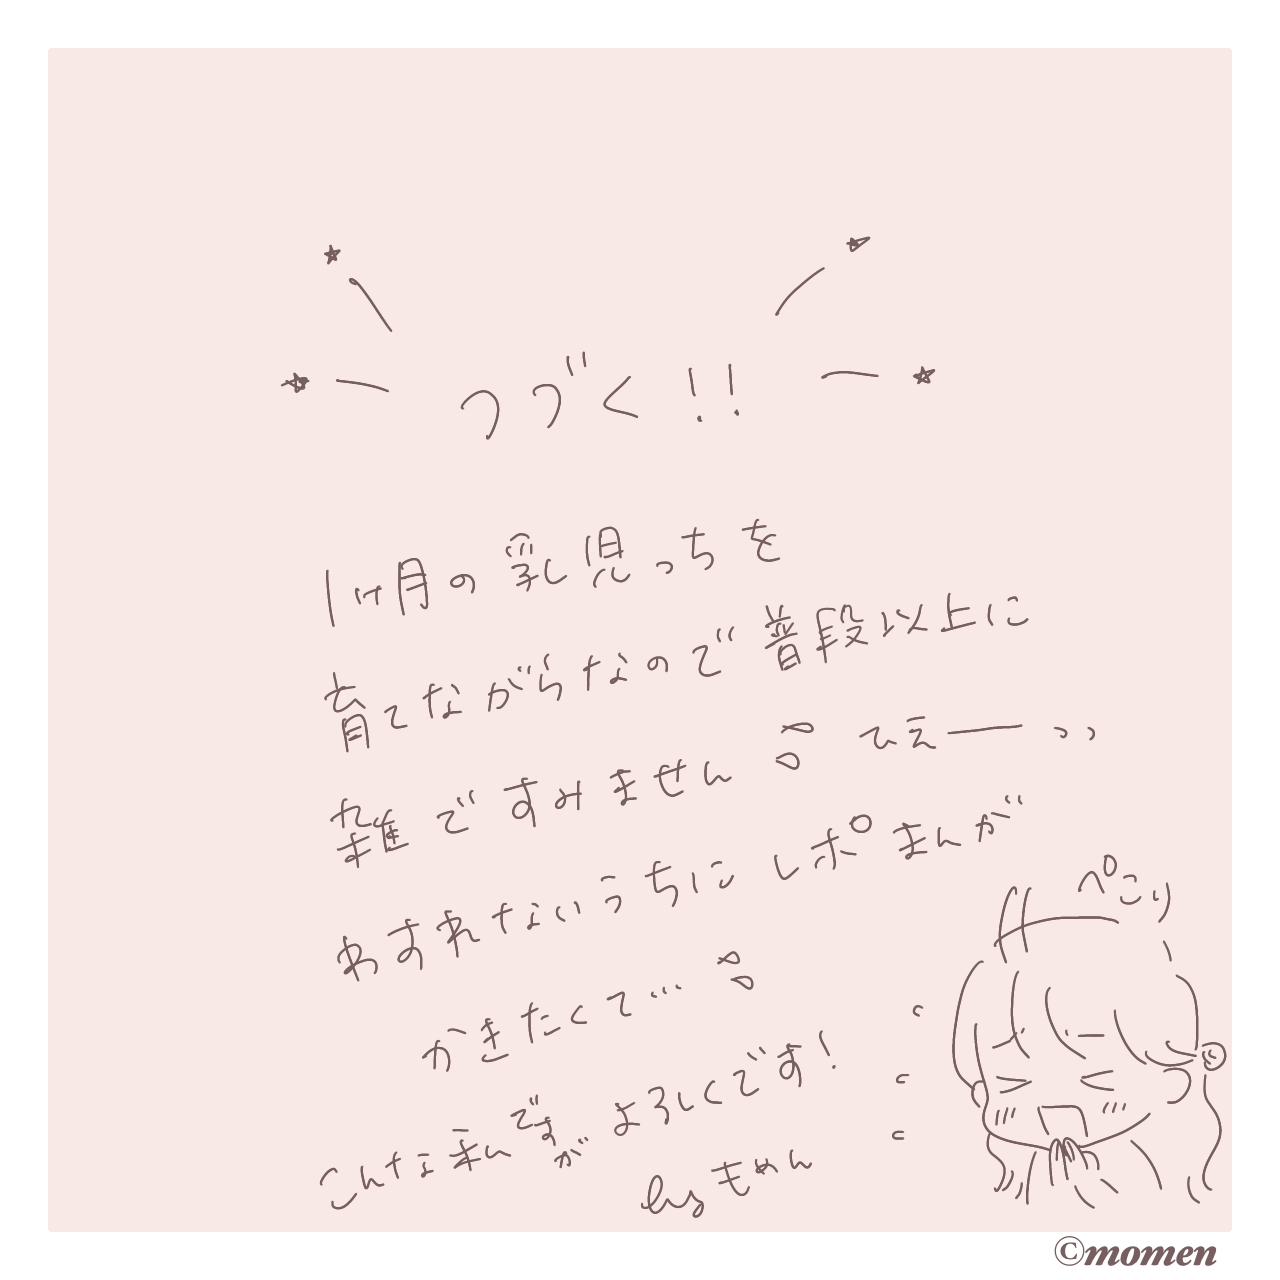 つづく!!
1ヶ月の乳児っちを
育てながらなので普段以上に
雑ですみません ひえーーっっ
わすれないうちにレポまんが
かきたくて…
ぺこり
こんな私ですが よろしくです!
by もめん
©momen